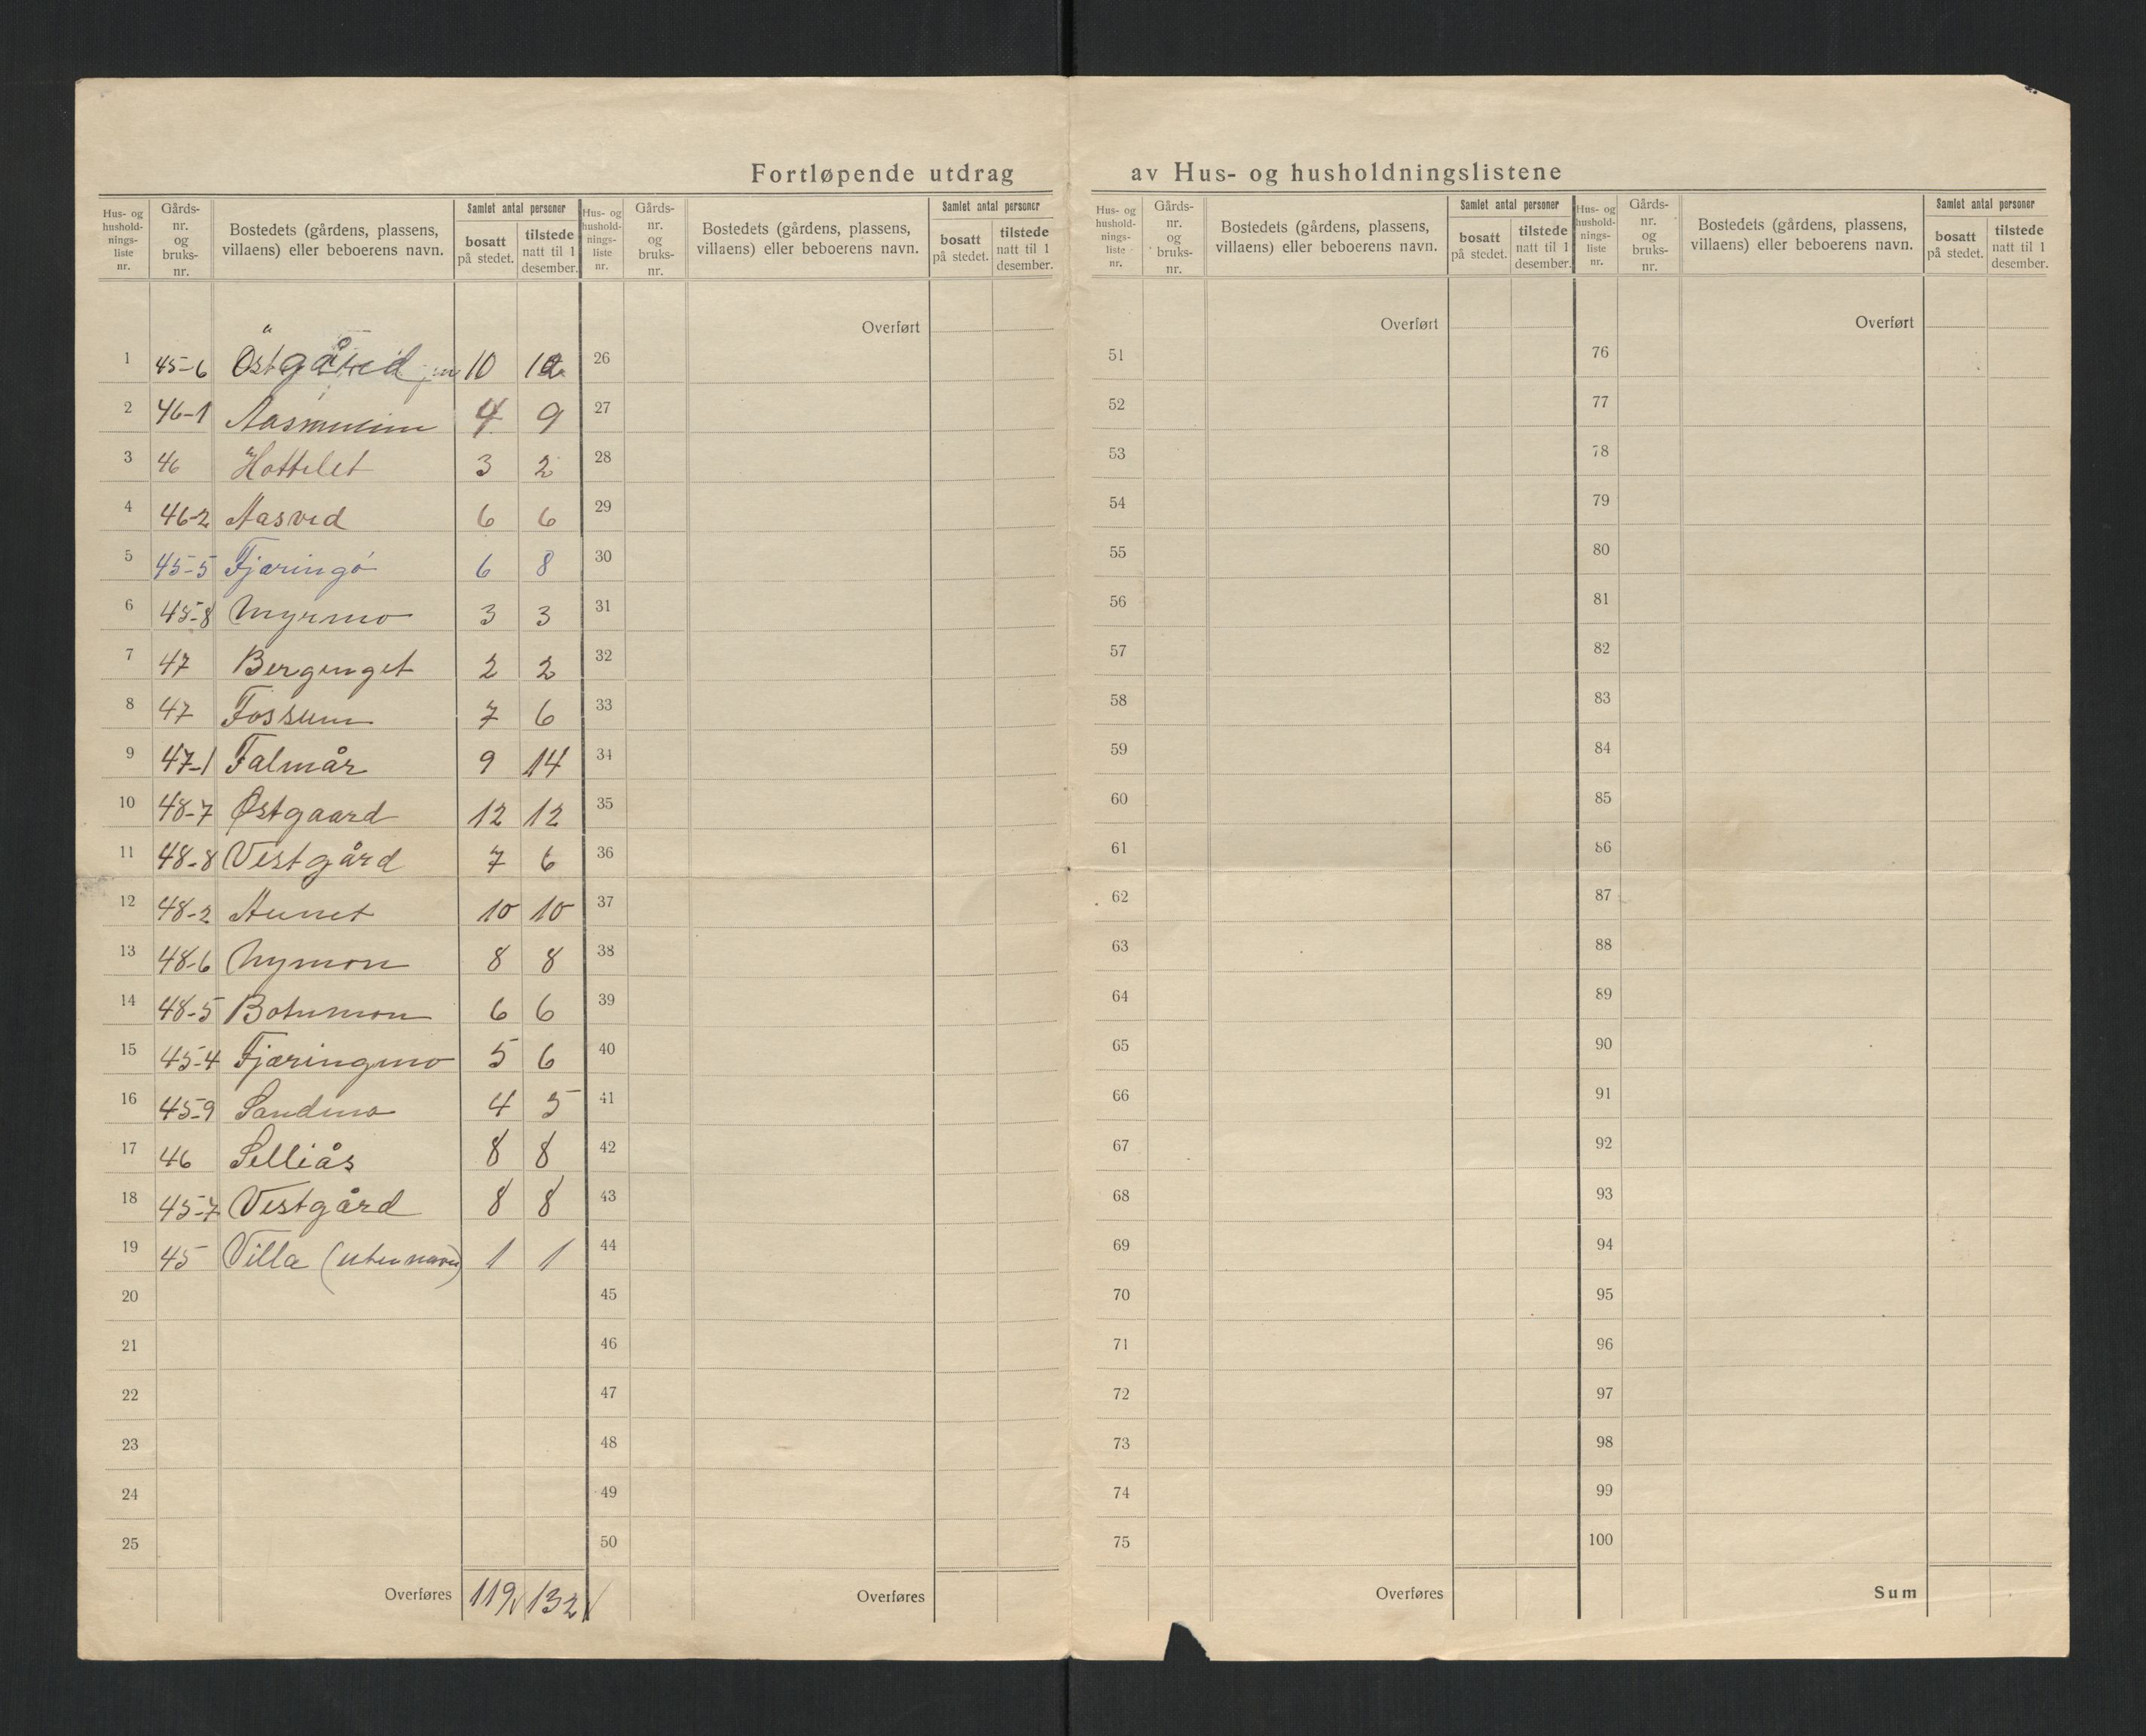 Fortløpende utdrag av Hus- og husholdningslistene
Hus- og hushold-nings-liste nr. Gårds-nr. og bruks-nr. Bostedets (gårdens, plassens, villaens) eller beboerens navn. Samlet antal personer bosatt på stedet. tilstede natt til 1 desember.
Hus- og hushold-nings-liste nr. Gårds-nr. og bruks-nr. Bostedets (gårdens, plassens, villaens) eller beboerens navn. Samlet antal personer bosatt på stedet. tilstede natt til 1 desember.
Hus- og hushold-nings-liste nr. Gårds-nr. og bruks-nr. Bostedets (gårdens, plassens, villaens) eller beboerens navn. Samlet antal personer bosatt på stedet. tilstede natt til 1 desember.
Hus- og hushold-nings-liste nr. Gårds-nr. og bruks-nr. Bostedets (gårdens, plassens, villaens) eller beboerens navn. Samlet antal personer bosatt på stedet. tilstede natt til 1 desember.
Overført Overført Overført
1 45-6 Östgård 10 26 51 76
2 46-1 4 9 27 52 77
3 46 Hottelet 3 2 28 53 78
4 46-2 Aasved 6 6 29 54 79
5 45-5 Fjæringø 6 8 30 55 80
6 45-8 Myrmo 3 3 31 56 81
7 47 Bergenget 2 2 32 57 82
8 47 Fossum 7 6 33 58 83
9 47-1 Falmår 9 14 34 59 84
10 48-7 Østgaard 12 12 35 60 85
11 48-8 Vestgård 7 6 36 61 86
12 48-2 Aunet 10 10 37 62 87
13 48-6 Nymon 8 8 38 63 88
14 48-5 Botnmon 6 6 39 64 89
15 45-4 Fjæringmo 5 6 40 65 90
16 45-9 Sandmo 4 5 41 66 91
17 46 Selliås 8 8 42 67 92
18 45-7 Vestgård 8 8 43 68 93
19 45 Villa (uten navn) 1 1 44 69 94
20 45 70 95
21 46 71 96
22 47 72 97
23 48 73 98
24 49 74 99
25 50 75 100
Overføres 119 132 Overføres Overføres Sum